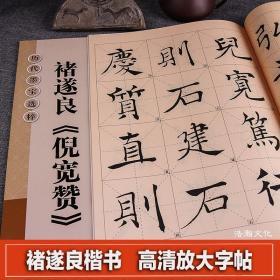 历代墨宝选粹
褚遂良《倪宽赞》
兒寬篤行
則石建石
慶質直則
浩瀚文化
褚遂良楷书 高清放大字帖